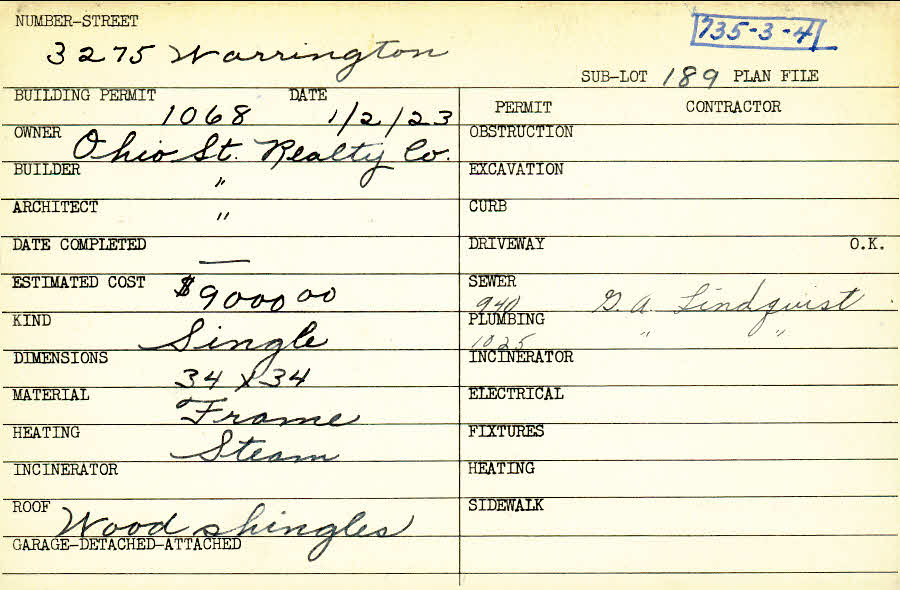 NUMBER-STREET
735-3-4
3275 Warrington
SUB-LOT 189 PLAN FILE
BUILDING PERMIT 1068 DATE 1/2/23
PERMIT CONTRACTOR
OWNER Ohio St. Realty Co.
OBSTRUCTION
BUILDER "
EXCAVATION
ARCHITECT "
CURB
DATE COMPLETED —
DRIVEWAY O.K.
ESTIMATED COST $9000 00
SEWER 940 G. A. Lindquist
KIND Single
PLUMBING 1025 " "
DIMENSIONS 34 x 34
INCINERATOR
MATERIAL Frame
ELECTRICAL
HEATING Steam
FIXTURES
INCINERATOR
HEATING
ROOF Wood shingles
SIDEWALK
GARAGE-DETACHED-ATTACHED